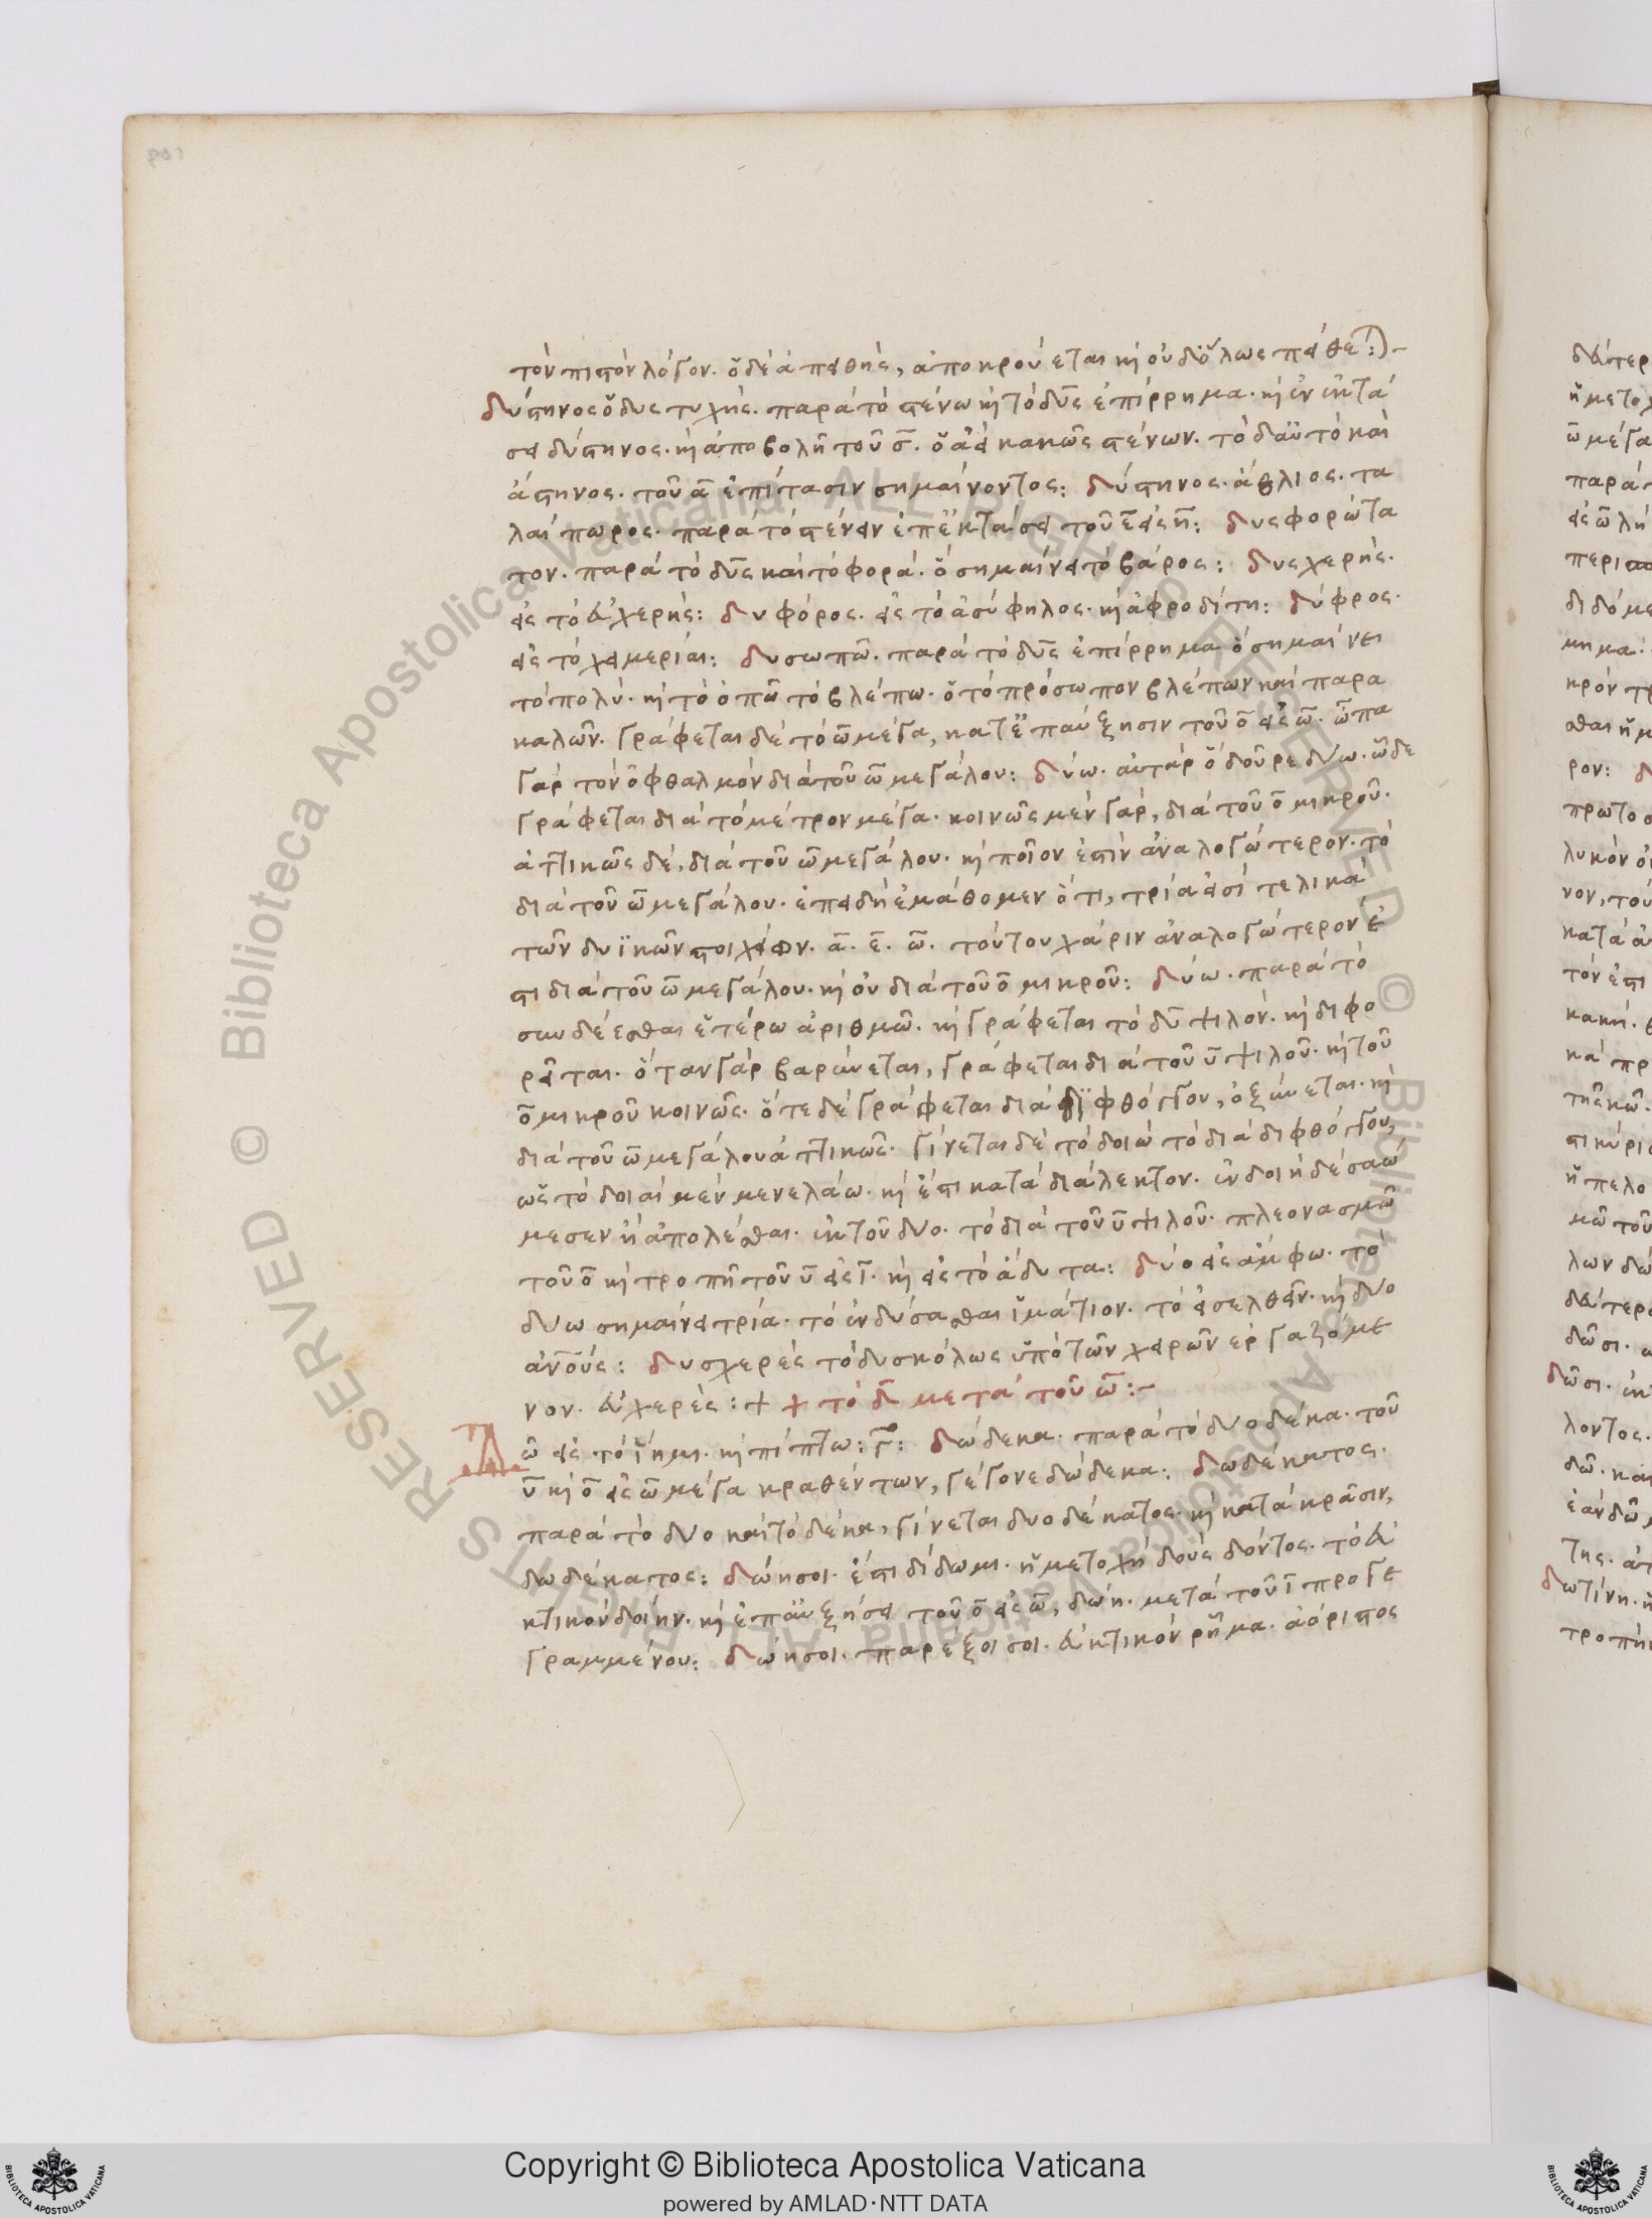 τὸν πιστὸν λόγον. ὁ δὲ ἀπαθὴς, ἀποκρούεται καὶ οὐδόλως πείθεται:)-
δύστηνος ὁ δυστυχής. παρὰ τὸ στένω καὶ τὸ δῡς ἐπίρρημα. καὶ ἐν ἐκτά
σει δύστηνος. καὶ ἀποβολῇ τοῦ σ̅. ὁ ἀεὶ κακῶς στένων. τὸ δ' αὐτὸ καὶ
ἄστηνος. τοῦ α̅ ἐπίτασιν σημαίνοντος: δύστηνος. ἄθλιος. τα
λαίπωρος. παρὰ τὸ στένειν ἐπεκτάσει τοῦ ε̅ εἰς η̅: δυσφορώτα
τον. παρὰ τὸ δῡς καὶ τὸ φορά. ὃ σημαίνει τὸ βάρος: δυσχερής.
εἰς τὸ εὐχερής: δυφόρος. εἰς τὸ ἀσύφηλος. καὶ ἀφροδίτη: δύφρος.
εἰς τὸ χειμερίαι: δυσωπῶ. παρὰ τὸ δῡς ἐπίρρημα ὃ σημαίνει
τὸ πολύ. καὶ τὸ ὀπῶ τὸ βλέπω. ὁ τὸ πρόσωπον βλέπων καὶ παρα
καλῶν. γράφεται δὲ τὸ ω̅ μέγα, κατ' ἐπαύξησιν τοῦ ο̅ εἰς ω̅. ὦπα
γὰρ τὸν ὀφθαλμὸν διὰ τοῦ ω̅ μεγάλου: δύω. αὐτὰρ ὁ δοῦρε δύω. ὧδε
γράφεται διὰ τὸ μέτρον μέγα. κοινῶς μὲν γὰρ, διὰ τοῦ ο̅ μικροῦ.
ἀττικῶς δὲ, διὰ τοῦ ω̅ μεγάλου. καὶ ποῖον ἐστὶν ἀναλογώτερον. τὸ
διὰ τοῦ ω̅ μεγάλου. ἐπειδὴ ἐμάθομεν ὅτι, τρία εἰσί τελικὰ
τῶν δυϊκῶν στοιχείων. α̅. ε̅. ω̅. τούτου χάριν ἀναλογώτερον ἐ
στι διὰ τοῦ ω̅ μεγάλου. καὶ οὐ διὰ τοῦ ο̅ μικροῦ: δύω. παρὰ τὸ
συνδέεσθαι ἑτέρω ἀριθμῶ. καὶ γράφεται τὸ δῡ ψιλόν. καὶ διφο
ρεῖται. ὅταν γὰρ βαρύνεται, γράφεται διὰ τοῦ υ̅ ψιλοῦ. καὶ τοῦ
ο̅ μικροῦ κοινῶς. ὅτε δὲ γράφεται διὰ διφθόγγου, ὀξύνεται. καὶ
διὰ τοῦ ω̅ μεγάλου ἀττικῶς. γίνεται δὲ τὸ δοιώ τὸ διὰ διφθόγγου,
ὡς τὸ δοιαὶ μὲν μενελάω. καὶ ἔστι κατὰ διάλεκτον. ἐν δοιῆ δὲ σαώ
μεσεν ἢ ἀπολέσθαι. ἐκ τοῦ δύο. τὸ διὰ τοῦ υ̅ ψιλοῦ. πλεονασμῶ
τοῦ ο̅ καὶ τροπῆ τοῦ υ̅ εἰς ι̅. καὶ εἰς τὸ ἄδυτα: δύο εἰς ἄμφω. τὸ
δύω σημαίνει τρία. τὸ ἐνδύσασθαι ἱμάτιον. τὸ εἰσελθεῖν. καὶ δύο
ἀν̅ο̅ύς: δυσχερές τὸ δυσκόλως ὑπὸ τῶν χειρῶν ἐργαζόμε
νον. εὐχερές: + + τὸ δ̅ μετὰ τοῦ ω̅:-
Δῶ εἰς τὸ ἵημι. καὶ πίπτω: δώδεκα. παρὰ τὸ δυοδέκα. τοῦ
υ̅ καὶ ο̅ εἰς ω̅ μέγα κραθέντων, γέγονε δώδεκα: δωδέκατος.
παρὰ τὸ δύο καὶ τὸ δέκα, γίνεται δυοδέκατος. καὶ κατὰ κρᾶσιν,
δωδέκατος: δώησοι. ἔστι δίδωμι. ἡ μετοχὴ δοὺς δόντος. τὸ εὐ
κτικὸν δοίην. καὶ ἐπαυξήσει τοῦ ο̅ εἰς ω̅, δώη. μετὰ τοῦ ι̅ προσγε
γραμμένου: δώησοι. παρέξοι σοι. εὐκτικὸν ρῆμα. ἀόριστος
Copyright © Biblioteca Apostolica Vaticana
powered by AMLAD·NTT DATA